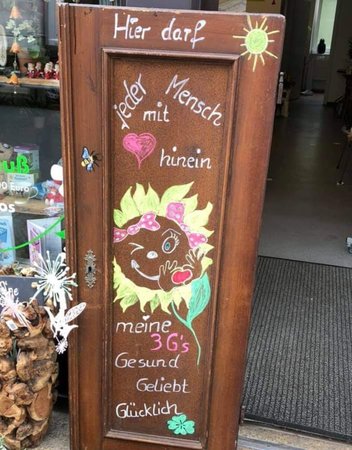 Hier darf
jeder Mensch
mit
hinein
meine
3 G's
Gesund
Geliebt
Glücklich